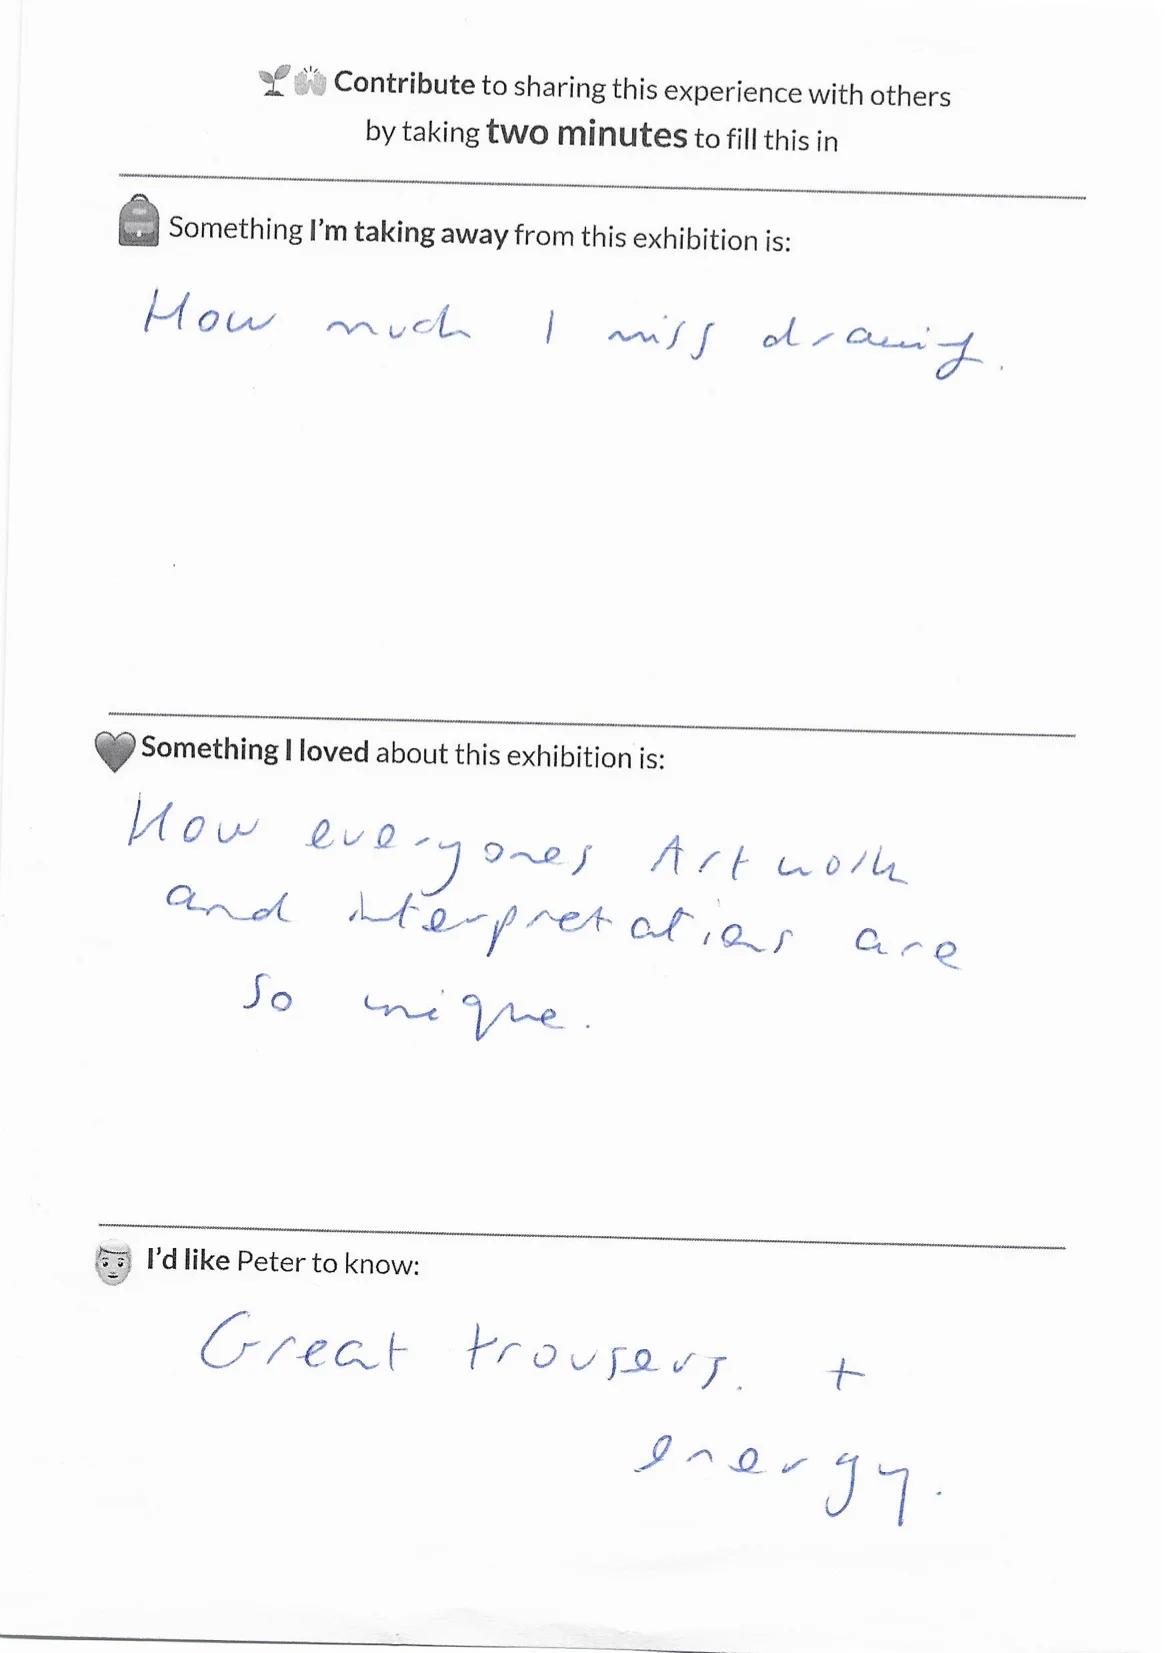 Contribute to sharing this experience with others
by taking two minutes to fill this in
Something I'm taking away from this exhibition is:
How much I miss drawing.
Something I loved about this exhibition is:
How everyones Artwork
and interpretations are
so unique.
I'd like Peter to know:
Great trousers. +
energy.